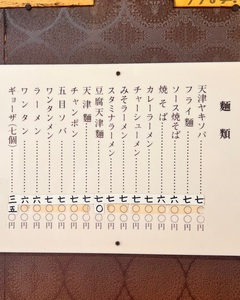 麺類
天津ヤキソバ……七〇〇円
フライ麺……七〇〇円
ソース焼そば……六〇〇円
焼そば……六〇〇円
カレーラーメン……七〇〇円
チャーシューメン……七〇〇円
みそラーメン……七〇〇円
スタミナラーメン……七〇〇円
豆腐天津麺……七〇〇円
天津麺……七〇〇円
チャンポン……七〇〇円
五目ソバ……七〇〇円
ワンタンメン……七〇〇円
ラーメン……六〇〇円
ワンタン……六〇〇円
ギョーザ(七個)……三五〇円